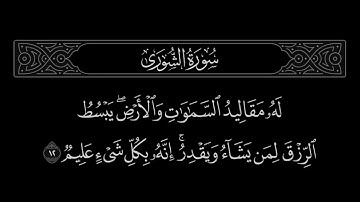 سُورَةُ الشُّورَىٰ
لَهُۥ مَقَالِيدُ ٱلسَّمَٰوَٰتِ وَٱلْأَرْضِ ۖ يَبْسُطُ
ٱلرِّزْقَ لِمَن يَشَآءُ وَيَقْدِرُ ۚ إِنَّهُۥ بِكُلِّ شَىْءٍ عَلِيمٌ ١٢